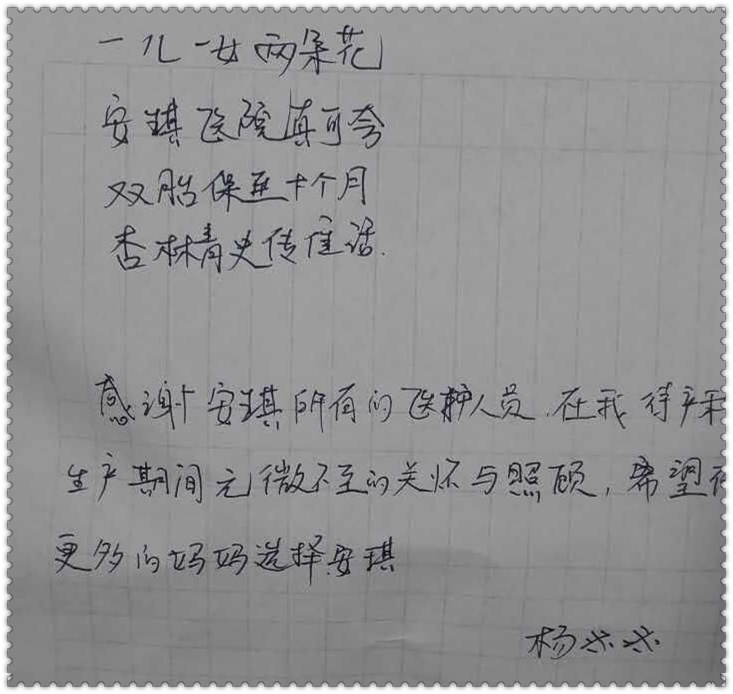 一儿一女两朵花
安琪医院真可夸
双胎保至十个月
杏林青史传佳话.
感谢安琪所有的医护人员.在我待产和
生产期间无微不至的关怀与照顾,希望有
更多的妈妈选择安琪
杨